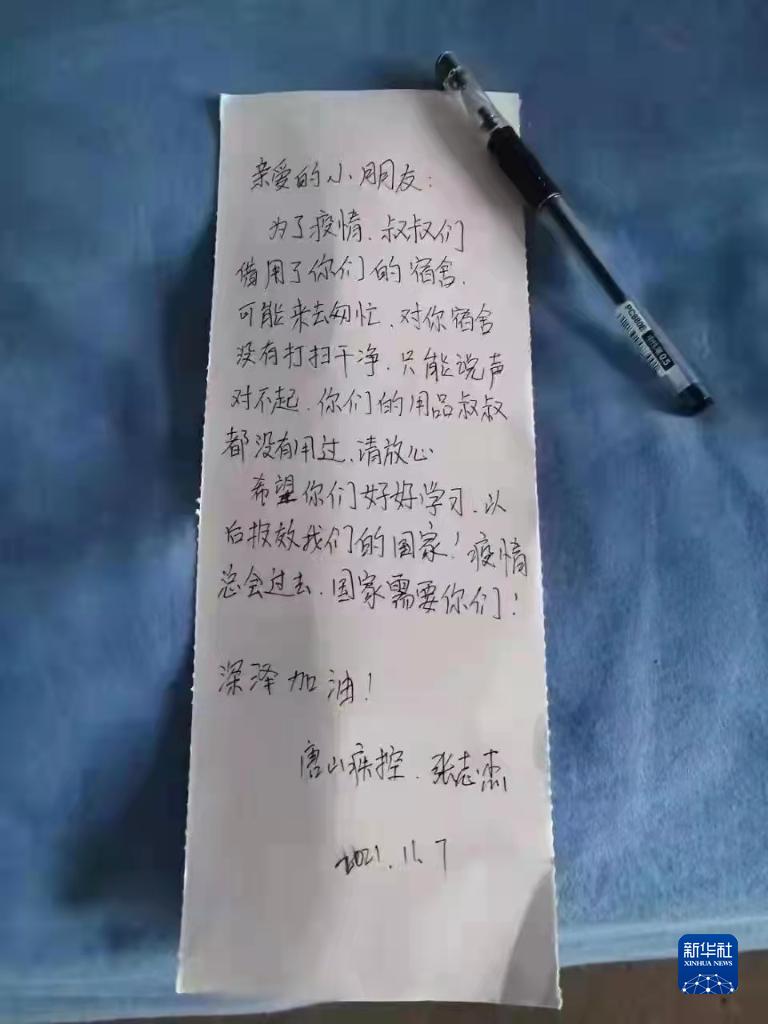 亲爱的小朋友：
为了疫情、叔叔们
借用了你们的宿舍、
可能来去匆忙、对你宿舍
没有打扫干净、只能说声
对不起、你们的用品叔叔
都没有用过、请放心
希望你们好好学习、以
后报效我们的国家！疫情
总会过去、国家需要你们！
深泽加油！
唐山疾控、张志杰
2021.11.7
0.5
新华社
XINHUA NEWS